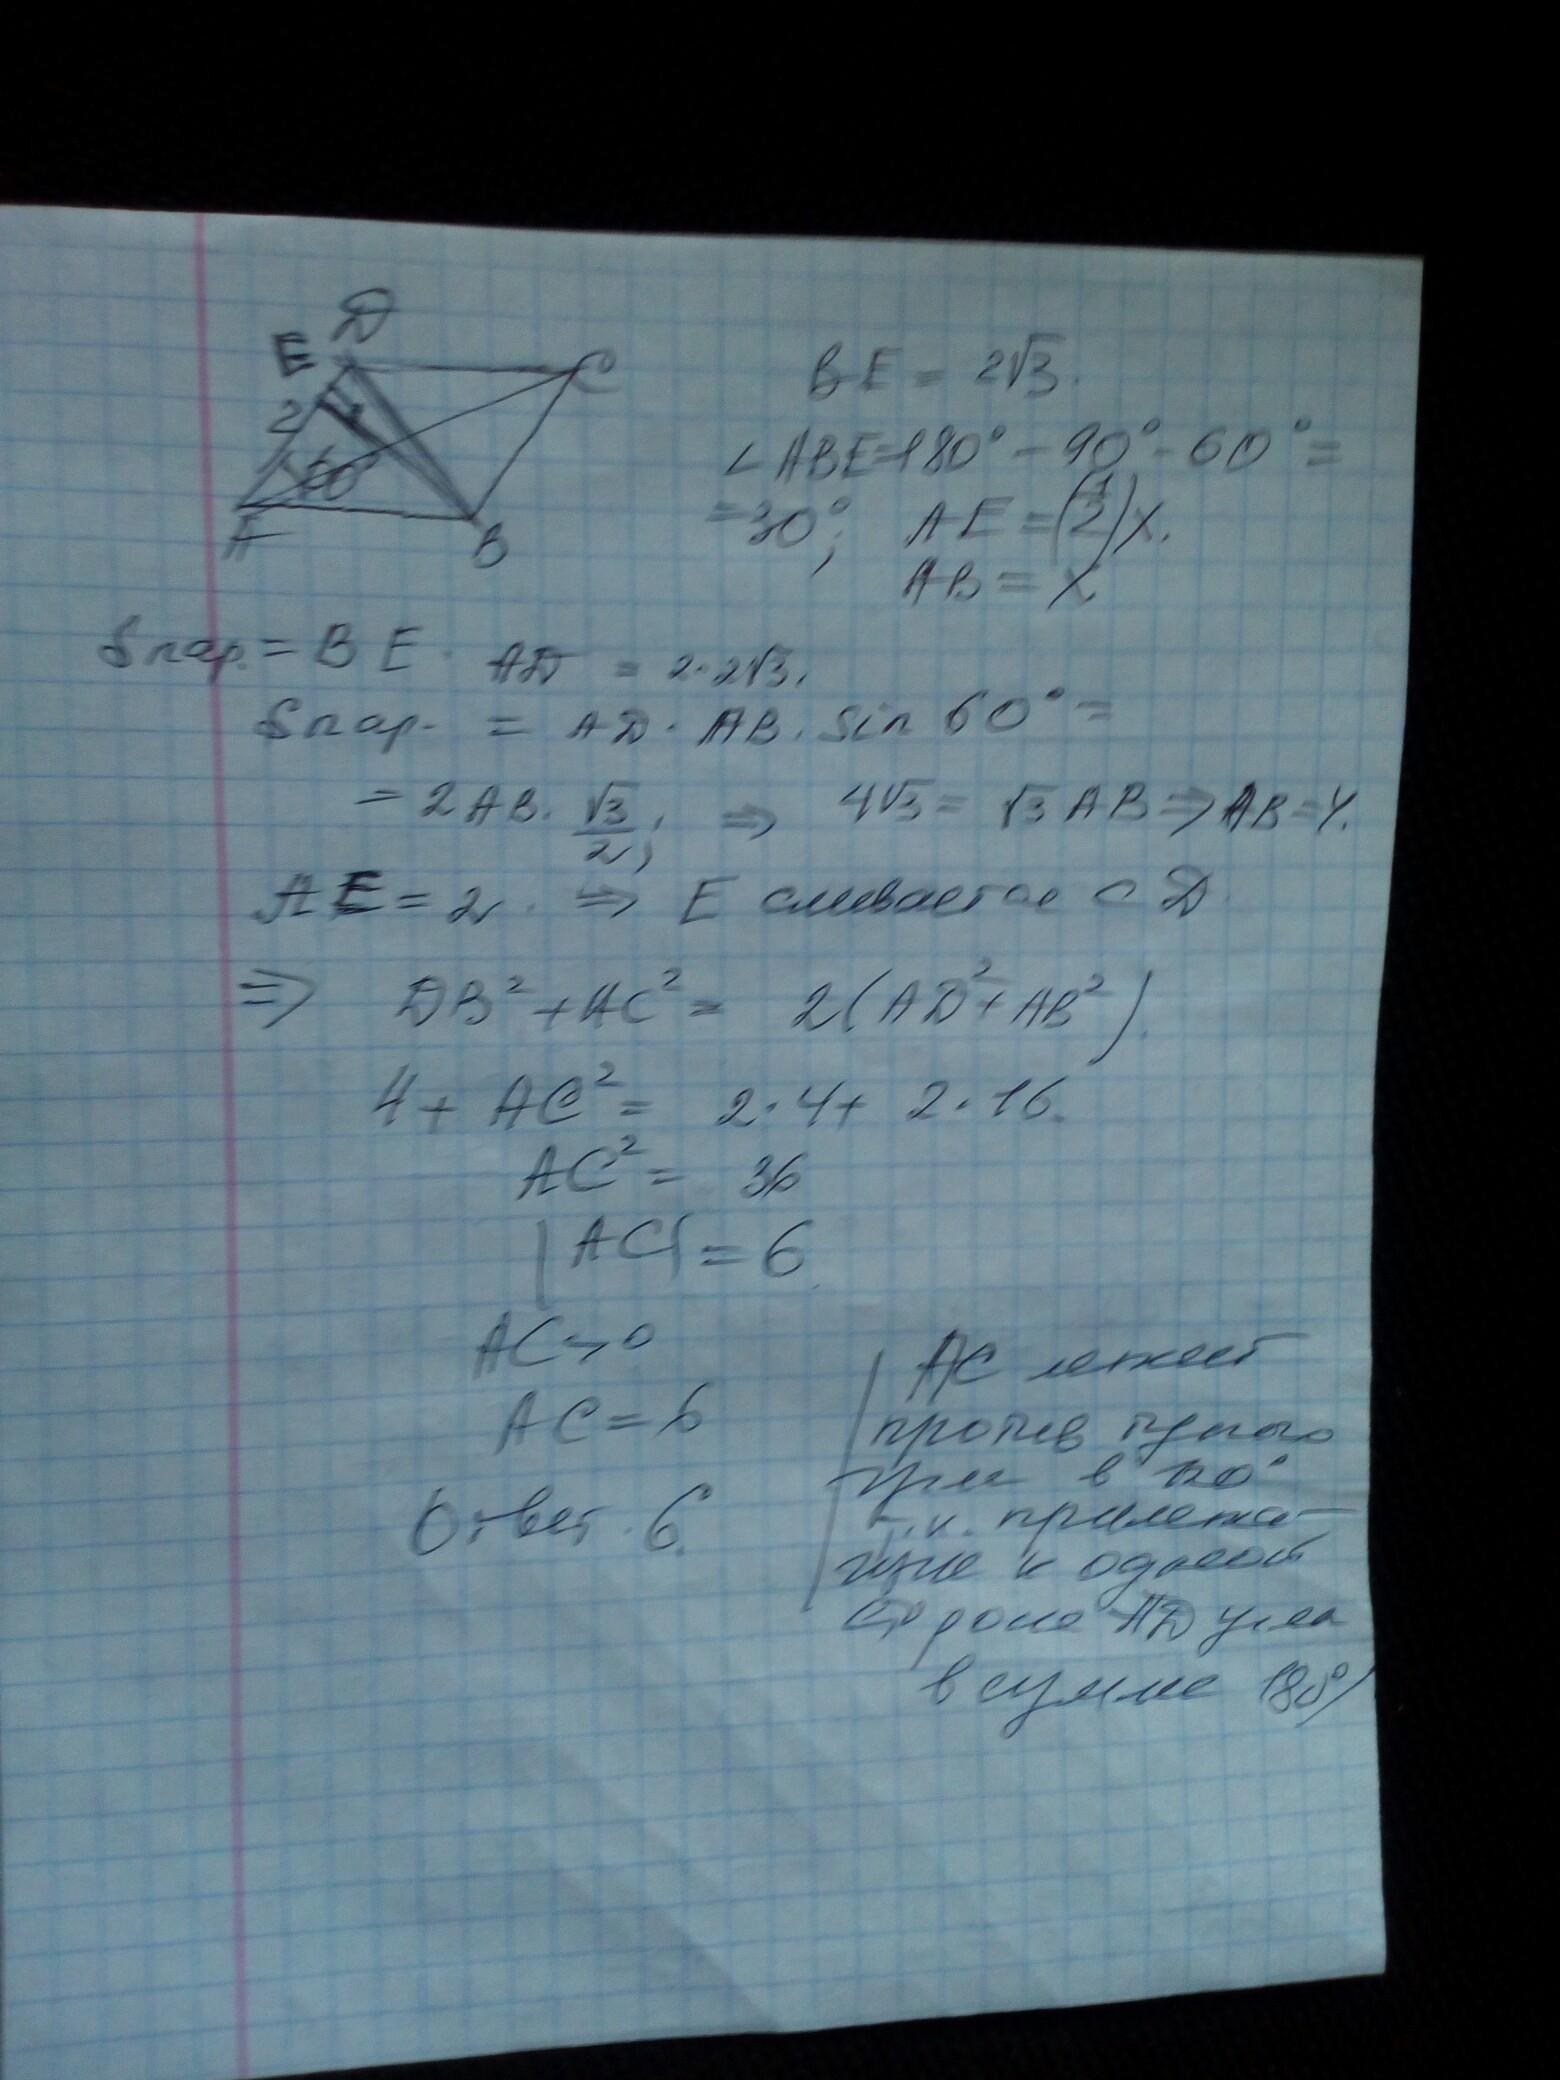 D
E
C
2
60
A
B
BE = 2√3.
∠ABE=180° - 90° - 60° =
= 30°; AE = (1/2)x.
AB = x
Sпар. = BE · AD = 2·2√3.
Sпар. = AD · AB · Sin 60° =
= 2AB · √3/2; ⇒ 4√3 = √3 AB ⇒ AB = 4.
AE = 2. ⇒ E сливается с D.
⇒ DB² + AC² = 2(AD² + AB²).
4 + AC² = 2·4 + 2·16.
AC² = 36
|AC| = 6.
AC > 0
AC = 6
Ответ. 6.
AC лежит
против тупого
угла в 120°
т.к. прилежа-
щие к одной
стороне AD угла
в сумме 180°)